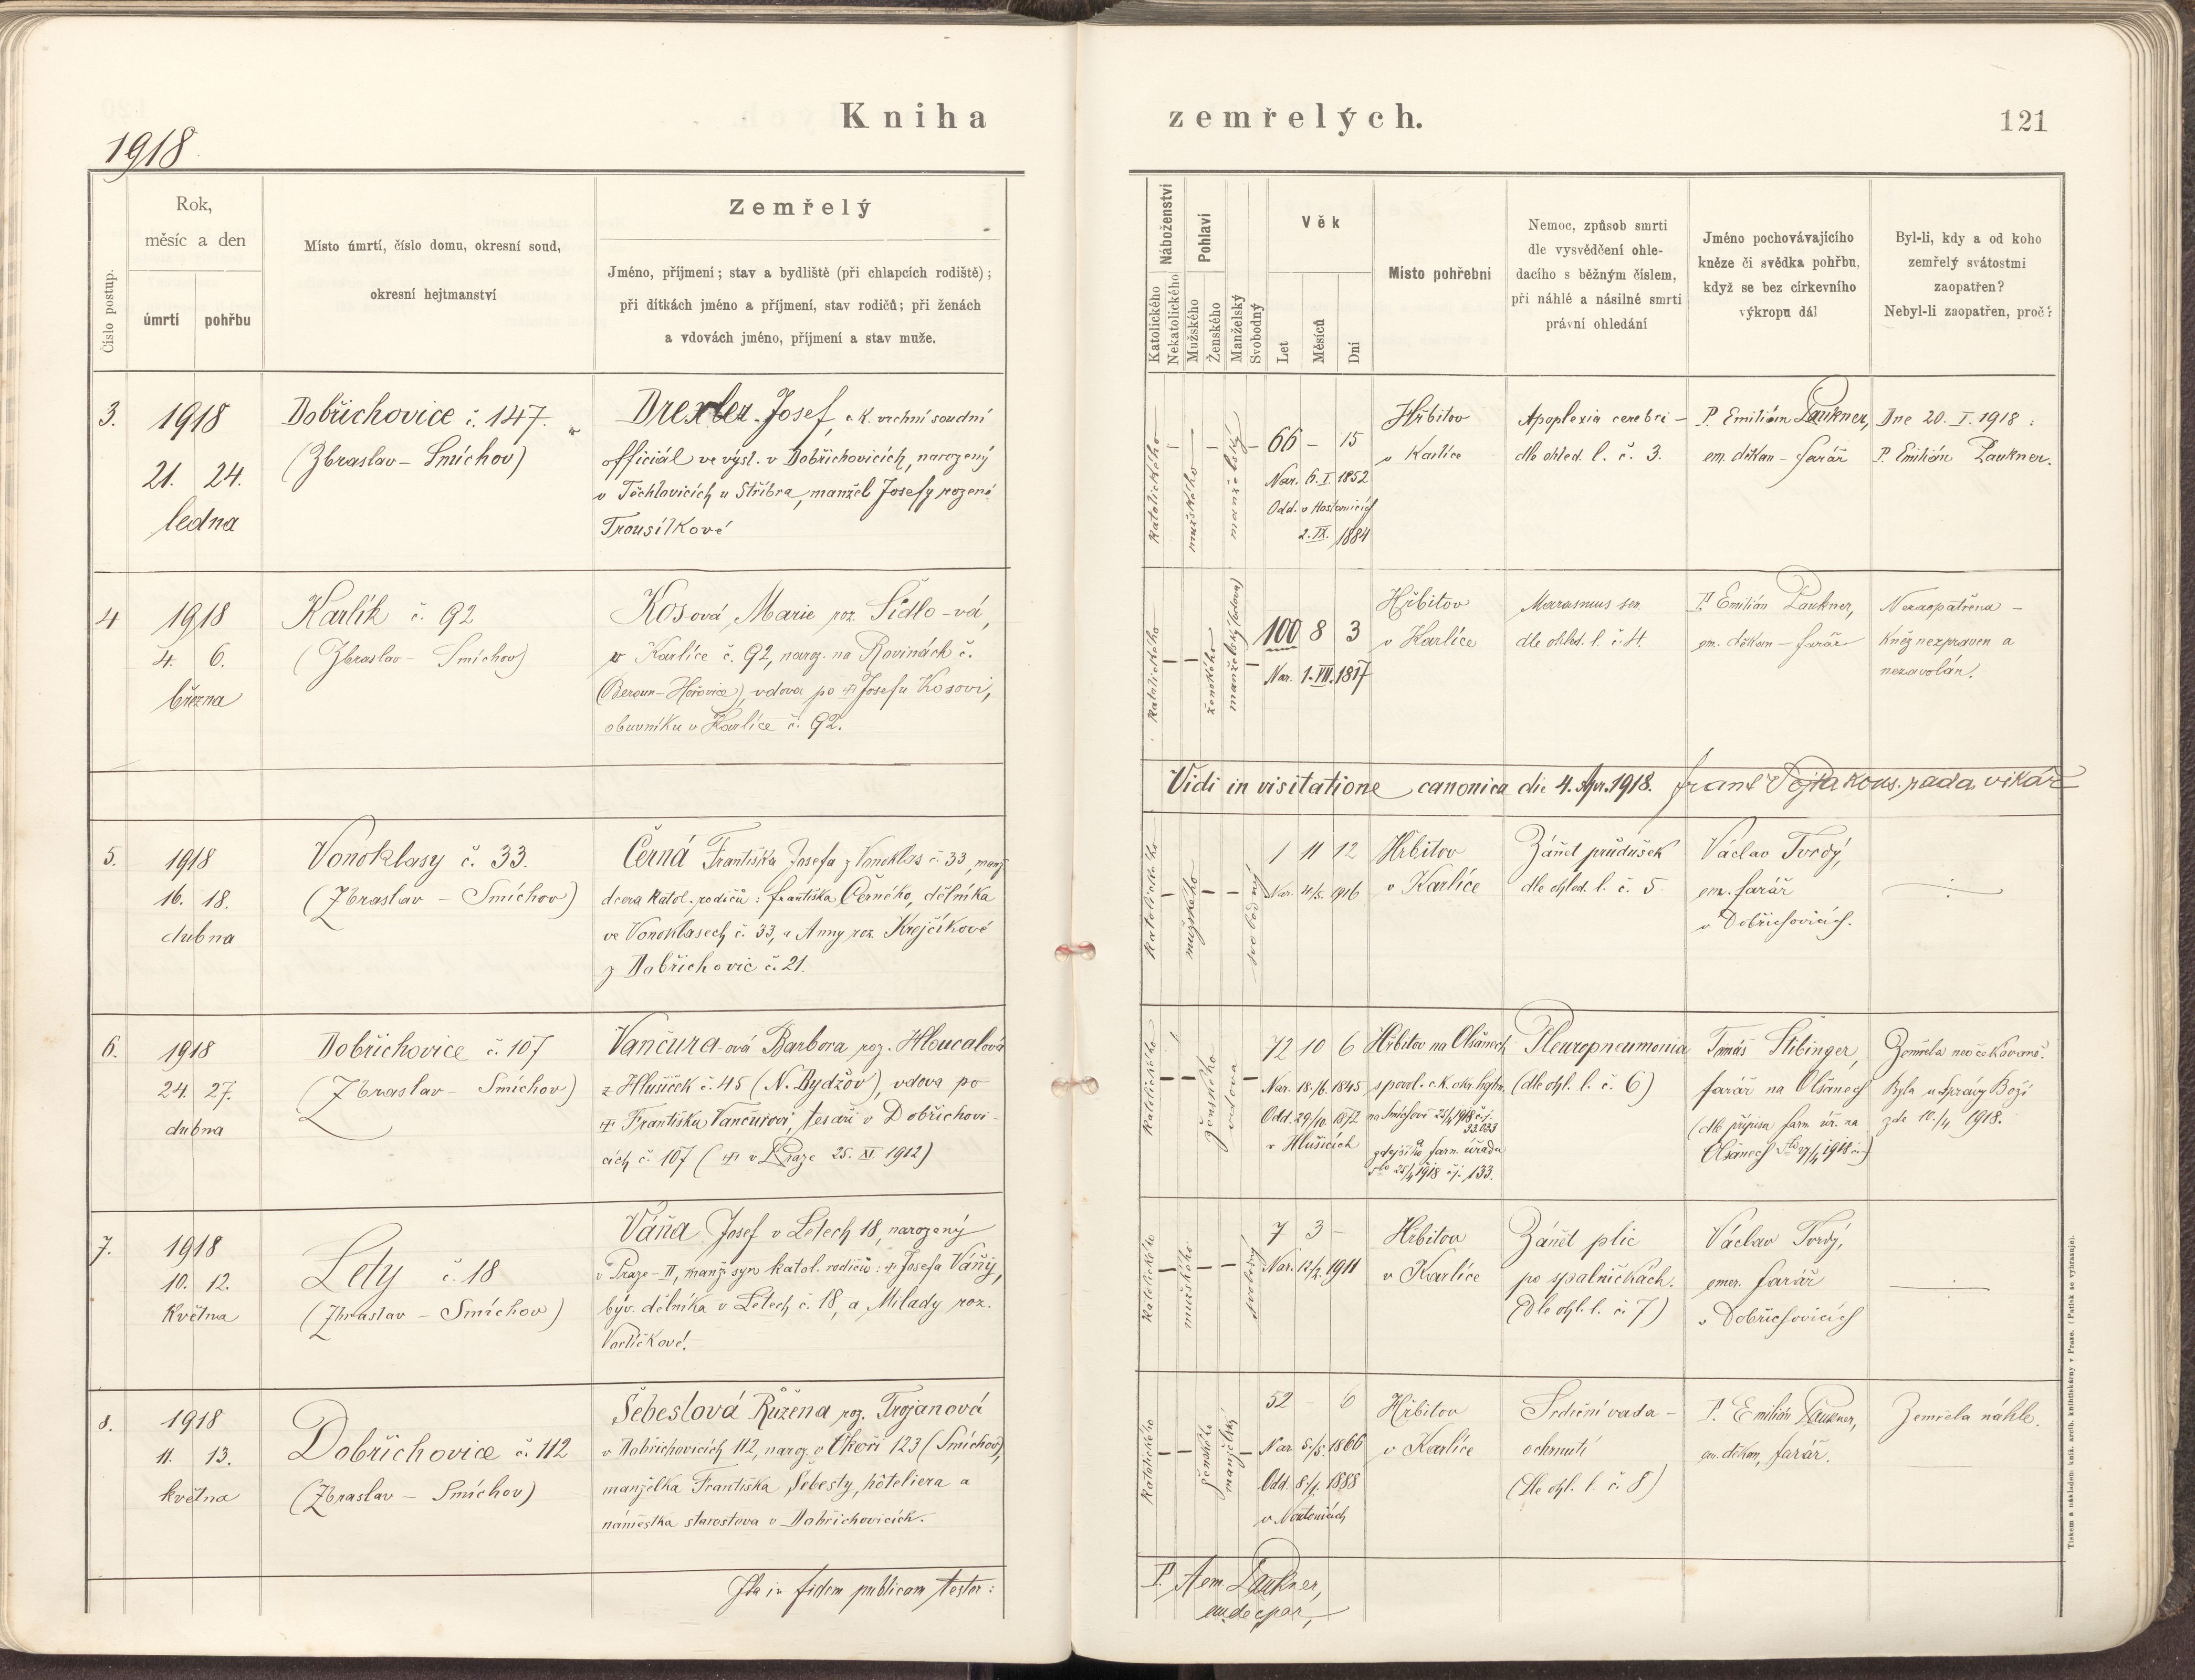 Kniha zemřelých.
121
1918
Číslo postup.
Rok,
měsíc a den
úmrtí
pohřbu
Místo úmrtí, číslo domu, okresní soud,
okresní hejtmanství
Zemřelý
Jméno, příjmení; stav a bydliště (při chlapcích rodiště);
při dítkách jméno a příjmení, stav rodičů; při ženách
a vdovách jméno, příjmení a stav muže.
Náboženství
Katolického
Nekatolického
Pohlaví
Mužského
Ženského
Manželský
Svobodný
Věk
Let
Měsíců
Dní
Místo pohřební
Nemoc, způsob smrti
dle vysvědčení ohle-
dacího s běžným číslem,
při náhlé a násilné smrti
právní ohledání
Jméno pochovávajícího
kněze či svědka pohřbu,
když se bez církevního
výkropu dál
Byl-li, kdy a od koho
zemřelý svátostmi
zaopatřen?
Nebyl-li zaopatřen, proč?
3.
1918
21. 24.
ledna
Dobřichovice č. 147.
(Zbraslav – Smíchov)
Drexler Josef, c. k. vrchní soudní
officiál ve výsl. v Dobřichovicích, narozený
v Těchlovicích u Stříbra, manžel Josefy rozené
Trousílkové
katolického
mužského
manželský
66 – 15
Nar. 6. I. 1852
Odd. v Hostomicích
2. IX. 1884
Hřbitov
v Karlíce
Apoplexia cerebri –
dle ohled. l. č. 3.
P. Emilián Paukner,
em. děkan – farář
Dne 20. I. 1918:
P. Emilián Paukner.
4
1918
4. 6.
března
Karlík č. 92
(Zbraslav – Smíchov)
Kosová, Marie roz. Šídlo-vá,
v Karlíce č. 92, naroz. na Rovinách č.
(Beroun-Hořovice), vdova po † Josefu Kosovi,
obuvníku v Karlíce č. 92.
katolického
ženského
manželský (vdova)
100 8 3
Nar. 1. VII. 1817
Hřbitov
v Karlíce
Marasmus sen.
dle ohled. l. č. 4.
P. Emilián Paukner,
em. děkan – farář
Nezaopatřena –
kněz nezpraven a
nezavolán.
Vidi in visitatione canonica die 4. Apr. 1918. Frant Vojta kons. rada, vikář
5.
1918
16. 18.
dubna
Vonoklasy č. 33.
(Zbraslav – Smíchov)
Černá Františka Josefa z Vonoklas č. 33, manž.
dcera katol. rodičů: Františka Černého, dělníka
ve Vonoklasech č. 33, a Anny roz. Krejčíkové
z Dobřichovic č. 21.
katolického
mužského
svobodný
1 11 12
Nar. 4/5. 1916
Hřbitov
v Karlíce
Zánět průdušek
dle ohled. l. č. 5
Václav Tvrdý,
em. farář
v Dobřichovicích.
6.
1918
24. 27.
dubna
Dobřichovice č. 107
(Zbraslav – Smíchov)
Vančura-ová Barbora roz. Hloucalová
z Hlušiček č. 45 (N. Bydžov), vdova po
† Františku Vančurovi, tesaři v Dobřichovi-
cích č. 107 († v Praze 25. XI. 1912)
katolického
ženského
vdova
72 10 6
Nar. 18/6. 1845
Odd. 29/10. 1872
v Hlušicích
Hřbitov na Olšanech
s povol. c. k. okr. hejtm.
na Smíchově 25/4 1918 č. j.
33.033
a
zdejšího farn. úřadu
25/4 1918 č. j. 133.
Pleuropneumonia
(dle ohl. l. č. 6)
Tomáš Stibinger,
farář na Olšanech
(dle přípisu farn. úř. na
Olšanech 27/4 1918 č.)
Zemřela neočekávaně.
Byla u Správy Boží
zde 10./4 1918.
7.
1918
10. 12.
května
Lety č. 18
(Zbraslav – Smíchov)
Váňa Josef v Letech 18, narozený
v Praze-II, manž. syn katol. rodičů: † Josefa Váňy,
býv. dělníka v Letech č. 18, a Milady roz.
Vorlíčkové.
katolického
mužského
svobodný
7 3 –
Nar. 12/2. 1911
Hřbitov
v Karlíce
Zánět plic
po spalničkách.
(dle ohl. l. č. 7)
Václav Tvrdý,
emer. farář
v Dobřichovicích
8.
1918
11. 13.
května
Dobřichovice č. 112
(Zbraslav – Smíchov)
Šebestová Růžena roz. Trojanová
v Dobřichovicích 112, naroz. v Okoři 123 (Smíchov),
manželka Františka Šebesty, hôteliera a
náměstka starostova v Dobřichovicích.
katolického
ženského
manželský
52 – 6
Nar. 5./5. 1866
Odd. 8/1. 1888
v Noutonicích
Hřbitov
v Karlíce
Srdeční vada –
ochrnutí
(dle ohl. l. č. 8)
P. Emilián Paukner,
em. děkan, farář.
Zemřela náhle.
Ita in fidem publicam testor:
P. Aem. Paukner,
em. dec. par.
Tiskem a nákladem kníž. arcib. knihtiskárny v Praze. (Patisk se vyhrazuje).